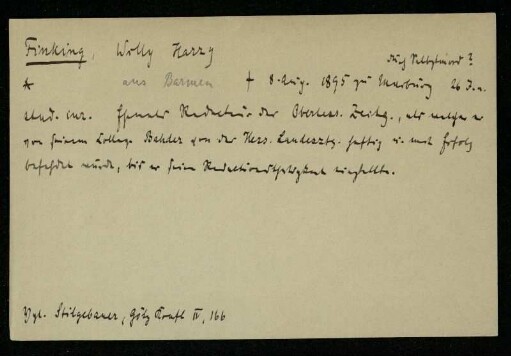 Finking, Willy Harry
durch Selbstmord?
* aus Barmen † 8. Aug. 1895 zu Marburg 26 J. a.
stud. iur. Ehemals Redakteur der Oberhess. Zeitg., als welcher er
von seinem Kollegen Bahder von der Hess. Landesztg. heftig u. mit Erfolg
befehdet wurde, bis er seine Redaktionsthätigkeit einstellte.
Vgl. Stilgebauer, Götz Krafft IV, 166